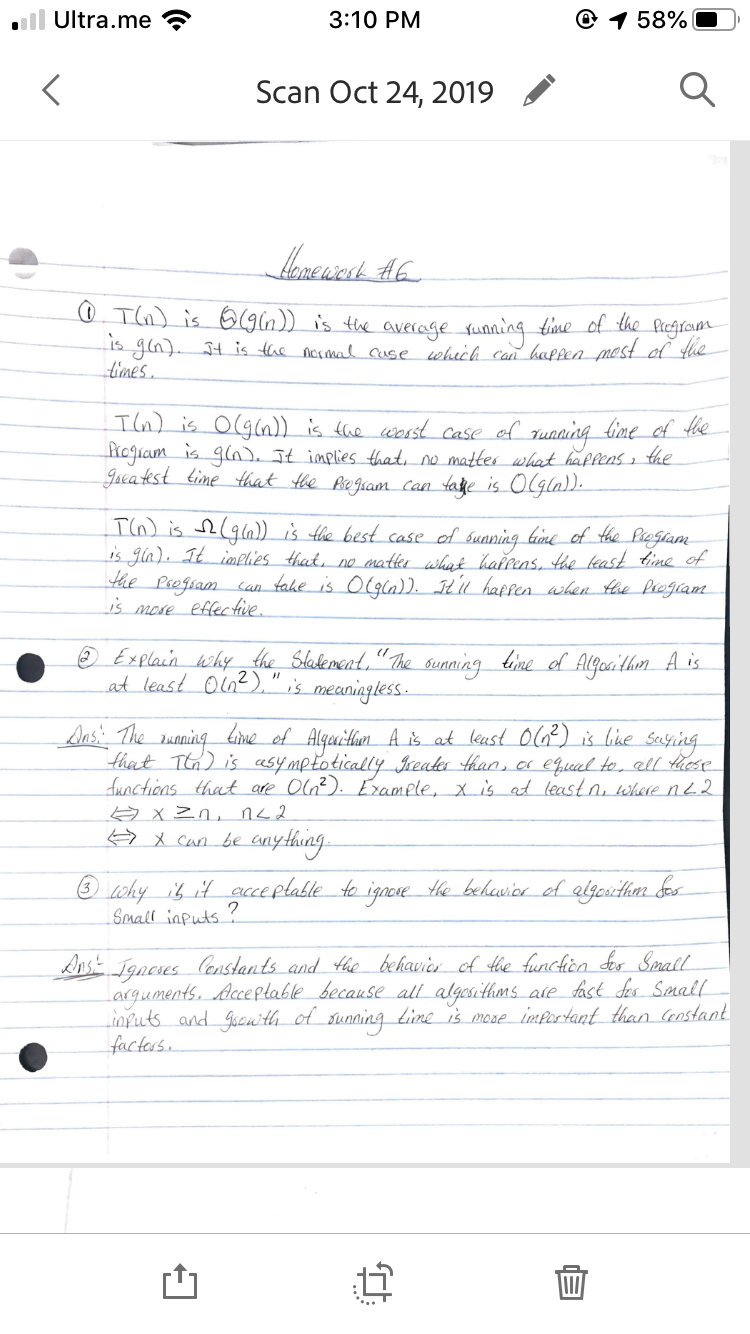 Ultra.me 3:10 PM 58%
Scan Oct 24, 2019
Homework #6
① T(n) is Θ(g(n)) is the average running time of the Program
is g(n). It is the normal case which can happen most of the
times.
T(n) is O(g(n)) is the worst case of running time of the
Program is g(n). It implies that, no matter what happens, the
greatest time that the Program can take is O(g(n)).
T(n) is Ω(g(n)) is the best case of running time of the Program
is g(n). It implies that, no matter what happens, the least time of
the Program can take is O(g(n)). It'll happen when the Program
is more effective.
② Explain why the Statement, "The running time of Algorithm A is
at least O(n²)," is meaningless.
Ans: The running time of Algorithm A is at least O(n²) is like saying
that T(n) is asymptotically greater than, or equal to, all those
functions that are O(n²). Example, x is at least n, where n<2
⇔ x ≥ n, n<2
⇔ x can be anything.
③ Why is it acceptable to ignore the behavior of algorithm for
Small inputs?
Ans:- Ignores Constants and the behavior of the function for Small
arguments. Acceptable because all algorithms are fast for Small
inputs and growth of running time is more important than Constant
factors.